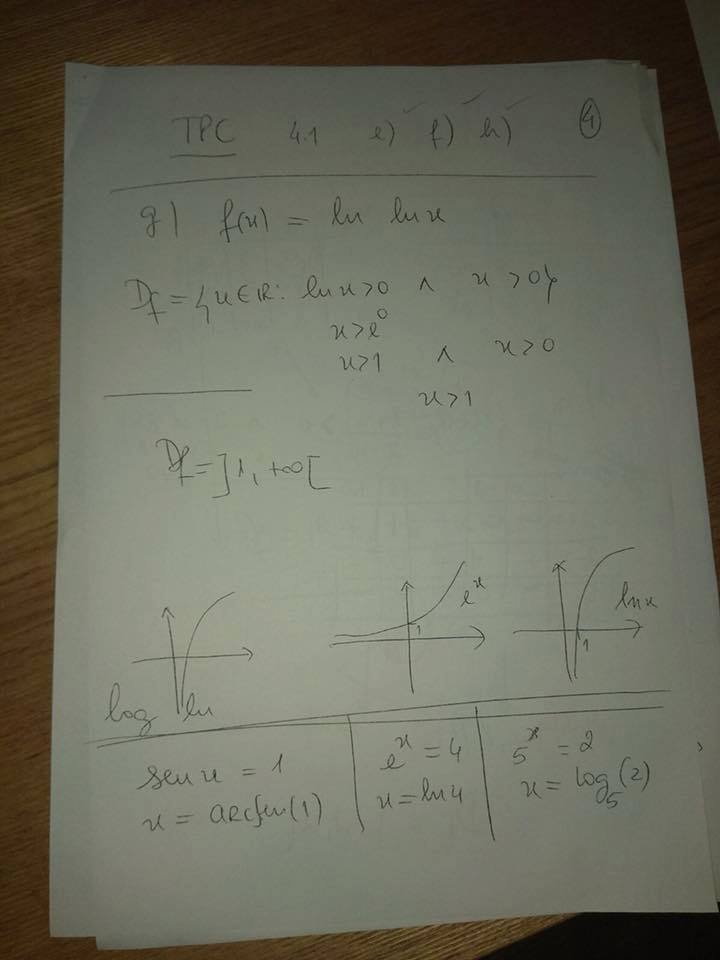 TPC 4.1 e) f) h) 4
g) f(x) = ln ln x
Df = {x ∈ IR: ln x > 0 ∧ x > 0}
x > e⁰
x > 1 ∧ x > 0
x > 1
Df = ]1, +∞[
log ln
1 eˣ
1 ln x
sen x = 1
x = arcsen(1)
eˣ = 4
x = ln 4
5ˣ = 2
x = log₅(2)